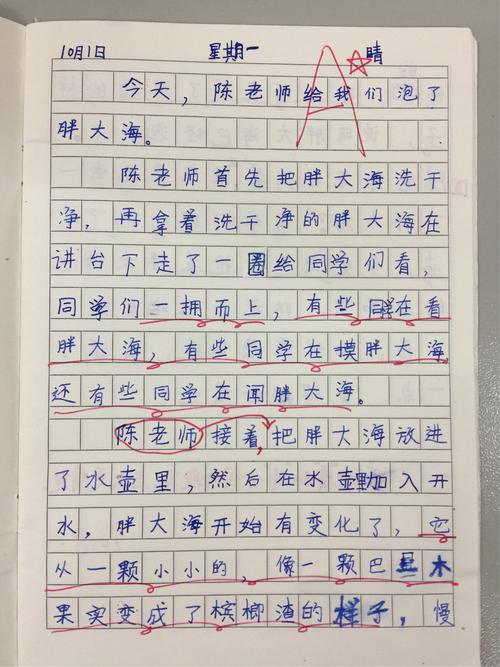 10月1日 星期一 晴
A
今天，陈老师给我们泡了
胖大海。
陈老师首先把胖大海洗干
净，再拿着洗干净的胖大海在
讲台下走了一圈给同学们看，
同学们一拥而上，有些同学在看
胖大海，有些同学在摸胖大海，
还有些同学在闻胖大海。
陈老师接着，把胖大海放进
了水壶里，然后在水壶里加入开
水，胖大海开始有变化了，它
从一颗小小的，像一颗巴旦木
果实变成了槟榔渣的样子，慢